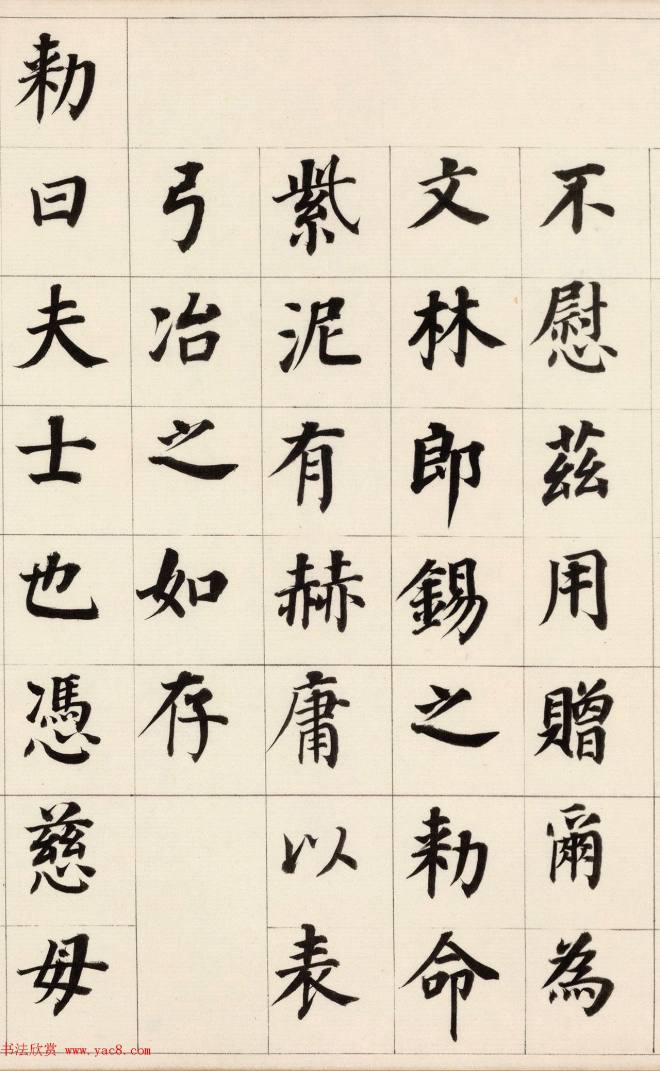 不慰茲用贈爾為
文林郎錫之勅命
紫泥有赫庸以表
弓冶之如存
勅曰夫士也憑慈母
书法欣赏 www.yac8.com